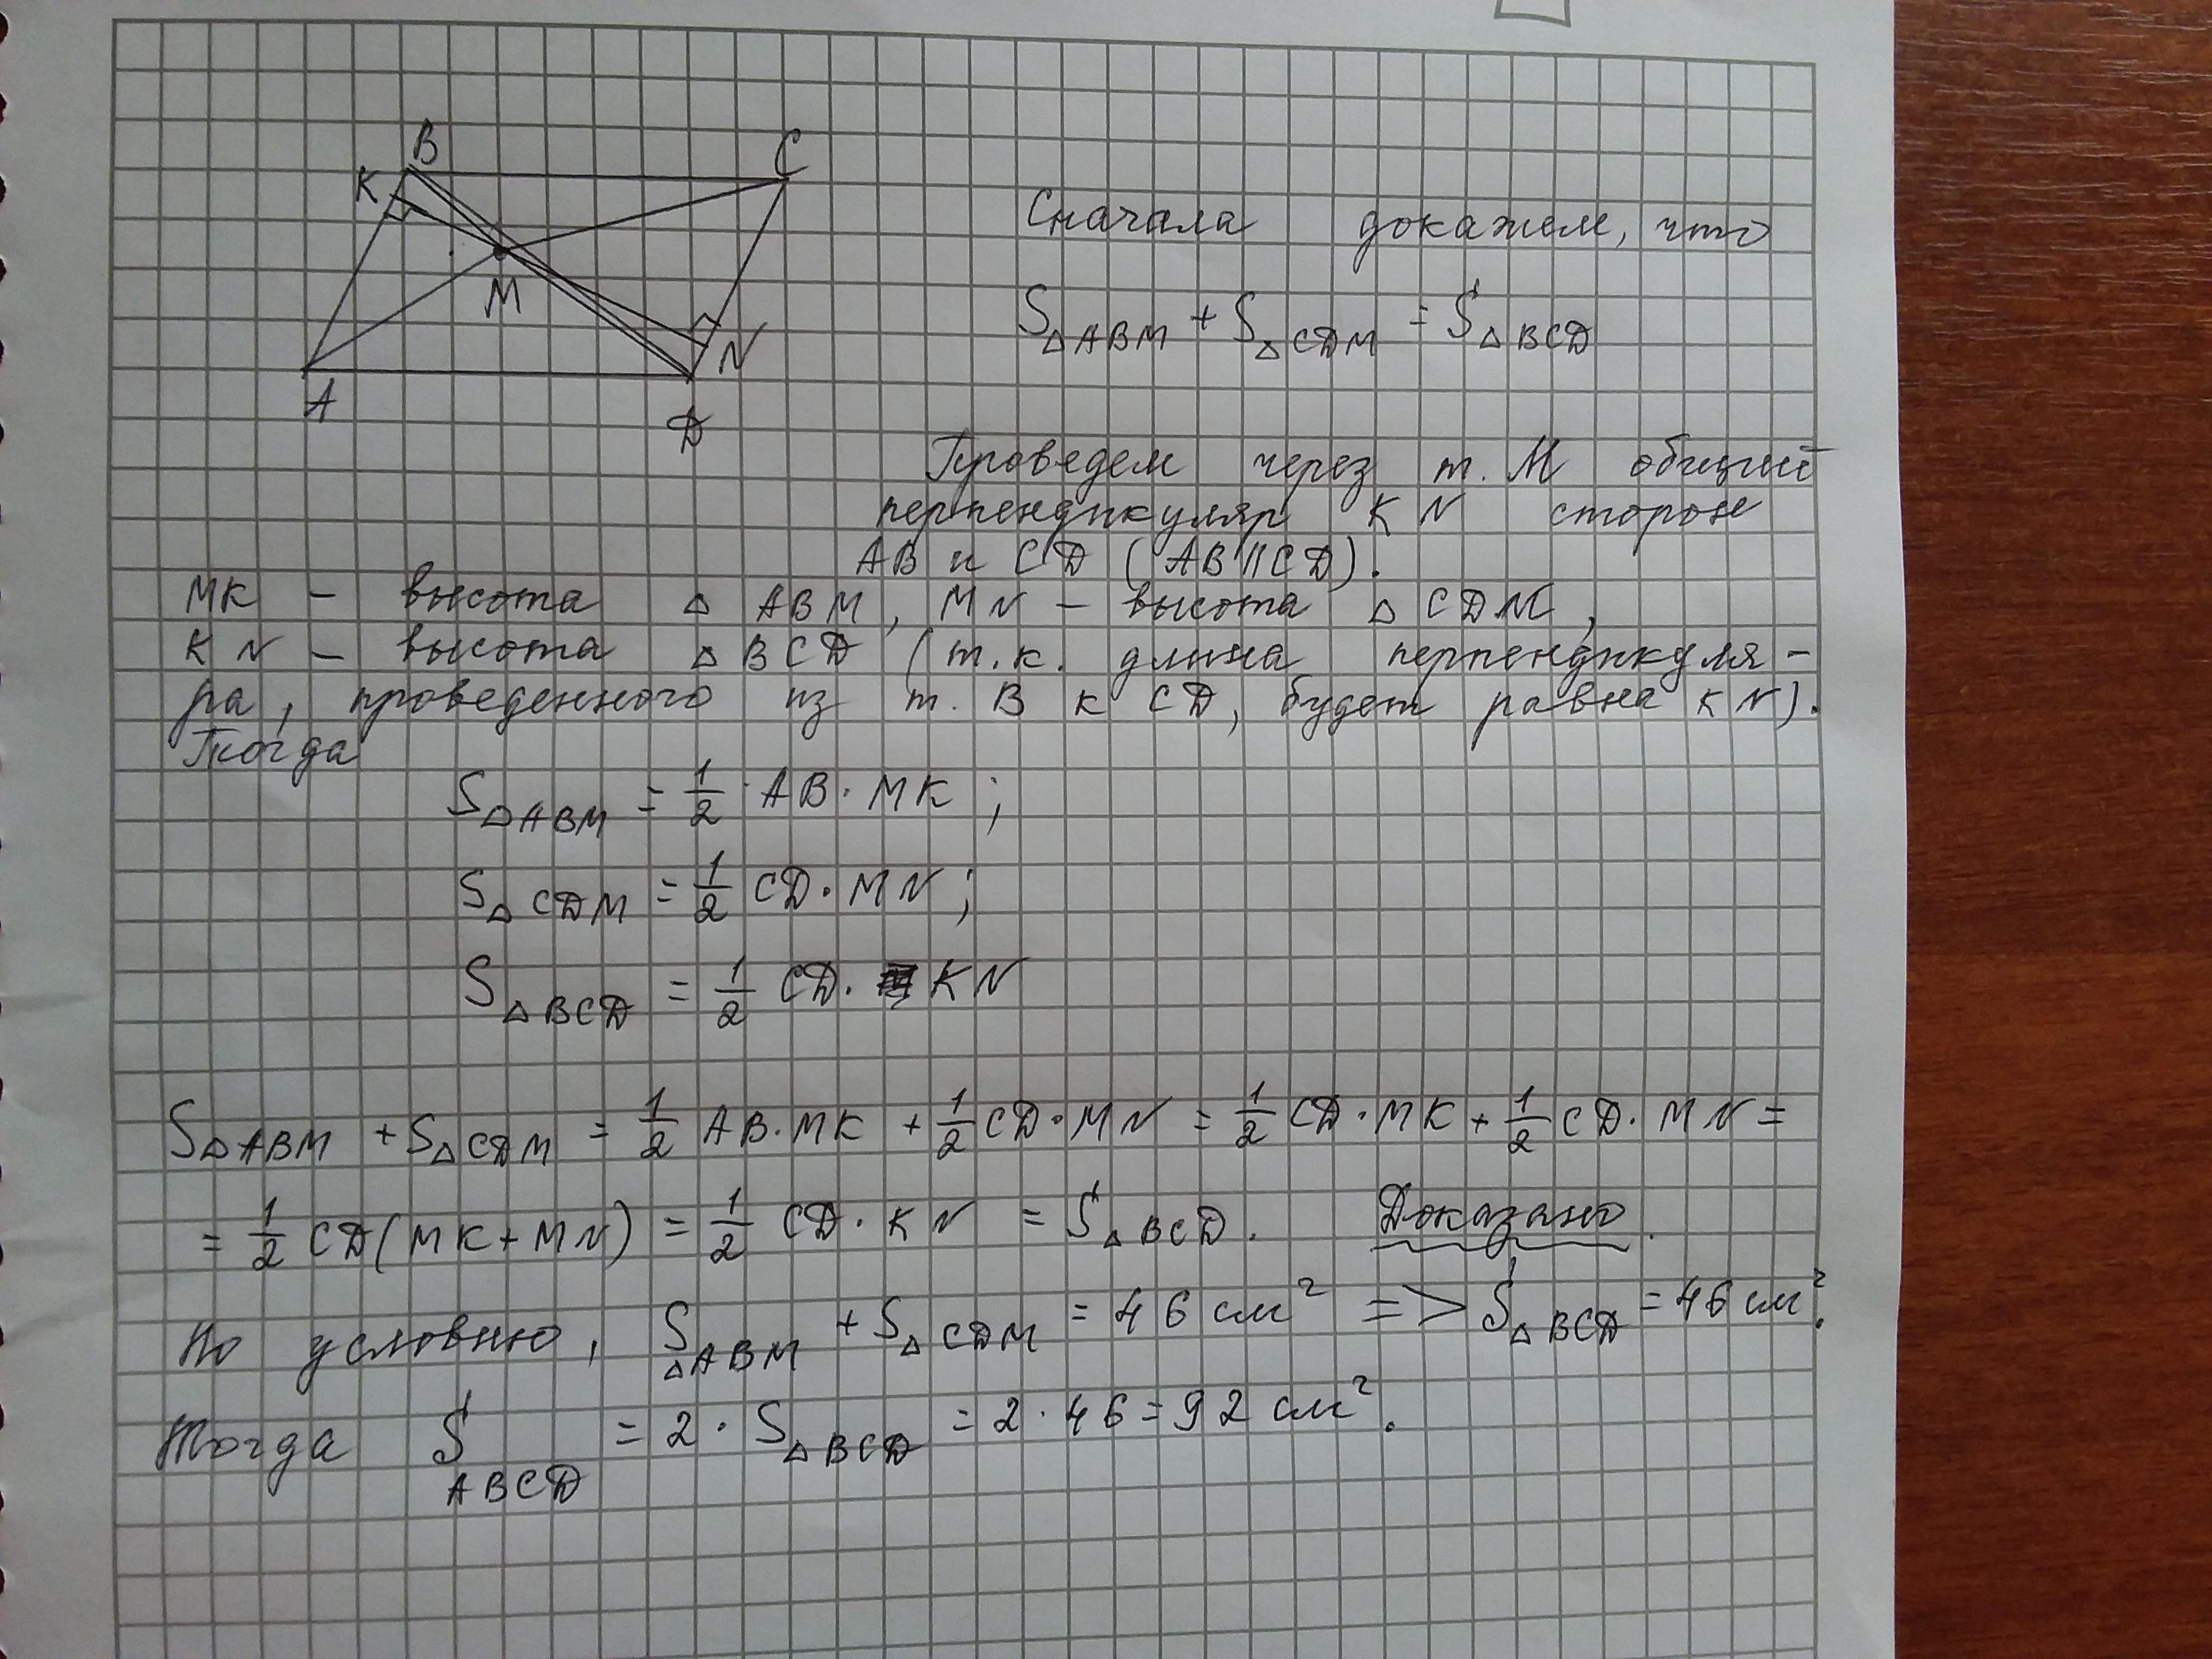 B
C
K
M
N
A
D
Сначала докажем, что
S△ABM + S△CDM = S△BCD
Проведем через т. M общий
перпендикуляр KN сторон
AB и CD (AB || CD).
MK – высота △ABM, MN – высота △CDM,
KN – высота △BCD (т.к. длина перпендикуля-
ра, проведенного из т. B к CD, будет равна KN).
Тогда
S△ABM = 1/2 · AB · MK;
S△CDM = 1/2 CD · MN;
S△BCD = 1/2 CD · KN
S△ABM + S△CDM = 1/2 AB · MK + 1/2 CD · MN = 1/2 CD · MK + 1/2 CD · MN =
= 1/2 CD(MK + MN) = 1/2 CD · KN = S△BCD. Доказано.
По условию, S△ABM + S△CDM = 46 см² => S△BCD = 46 см².
Тогда S ABCD = 2 · S△BCD = 2 · 46 = 92 см².